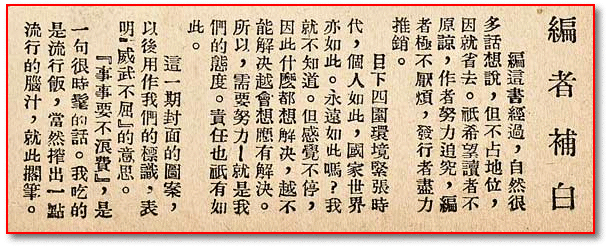 編者補白
編這書經過,自然很
多話想說,但不占地位,
因就省去。祇希望讀者不
原諒,作者努力追究,編
者極不厭煩,發行者盡力
推銷。
目下四圍環境緊張時
代,個人如此,國家世界
亦如此。永遠如此嗎?我
就不知道。但感覺不停,
因此什麽都想解決,越不
能解決越會想應有解決。
所以,需要努力!就是我
們的態度。責任也祇有如
此。
這一期封面的圖案,
以後用作我們的標識,表
明『威武不屈』的意思。
『事事要不浪費』,是
一句很時髦的話。我吃的
是流行飯,當然搾出一點
流行的腦汁,就此擱筆。